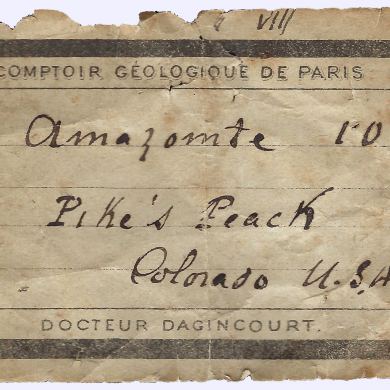 VIII
COMPTOIR GÉOLOGIQUE DE PARIS
Amazonite 10
Pike's Peack
Colorado U.S.A
DOCTEUR DAGINCOURT.